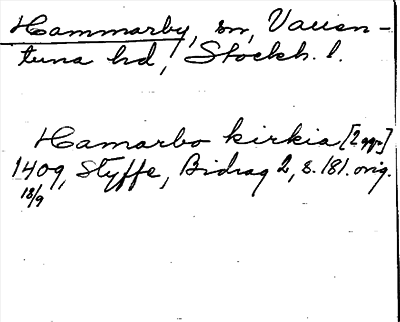 Hammarby, sn, Vallen-
tuna hd, Stockh. l.
Hamarbo kirkia [2 ggr]
1409, Styffe, Bidrag 2, s. 181. orig.
18/9